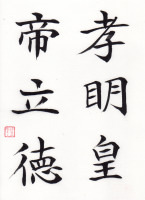 孝明皇
帝立德